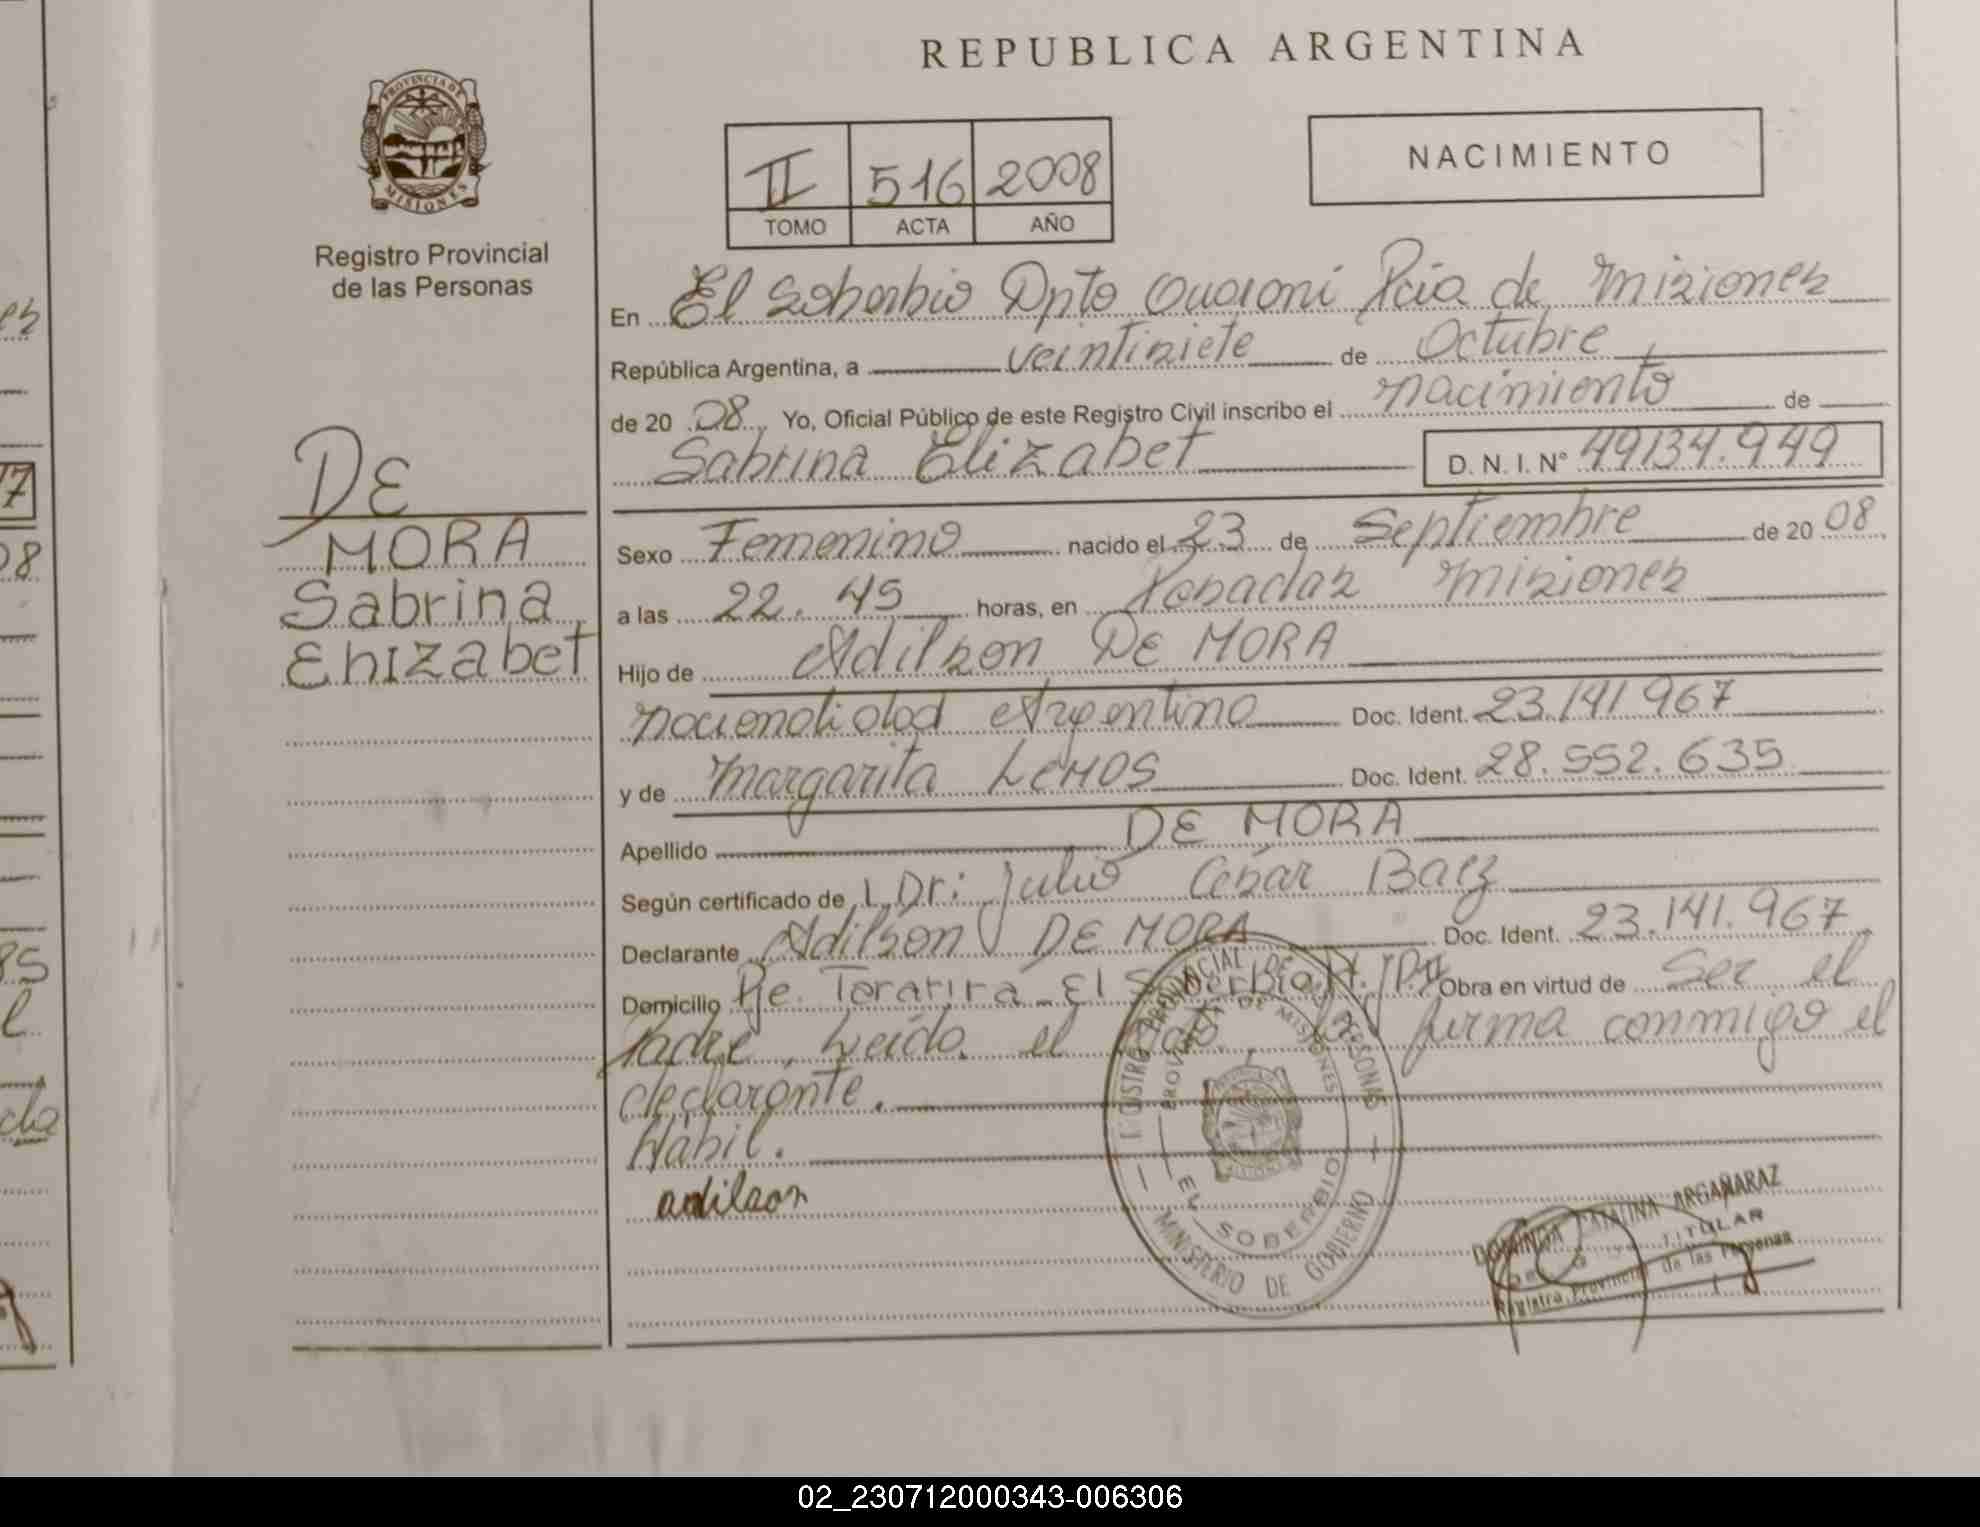 REPUBLICA ARGENTINA
PROVINCIA DE
MISIONES
Registro Provincial
de las Personas
II 516 2008
TOMO ACTA AÑO
NACIMIENTO
DE
MORA
Sabrina
Elizabet
En El Soberbio Dpto Guaraní Pcia de Misiones
República Argentina, a veintisiete de Octubre
de 20 08 Yo, Oficial Público de este Registro Civil inscribo el nacimiento de
Sabrina Elizabet D. N. I. N° 49134.949
Sexo Femenino nacido el 23 de Septiembre de 20 08
a las 22.45 horas, en Posadas Misiones
Hijo de Adilson DE MORA
nacionalidad Argentina Doc. Ident. 23.141.967
y de Margarita LEMOS Doc. Ident. 28.552.635
Apellido DE MORA
Según certificado de Dr: Julio César Baez
Declarante Adilson DE MORA Doc. Ident. 23.141.967
Domicilio Pje. Tararira - El Soberbio Obra en virtud de Ser el
Padre, Leída el firma conmigo el
declarante.
Hábil.
adilson
PROVINCIAL DE PERSONAS
PROVINCIA DE MISIONES
EL SOBERBIO
MINISTERIO DE GOBIERNO
CATALINA ARGAÑARAZ
TITULAR
Registro Provincial de las Personas
17
08
02_230712000343-006306